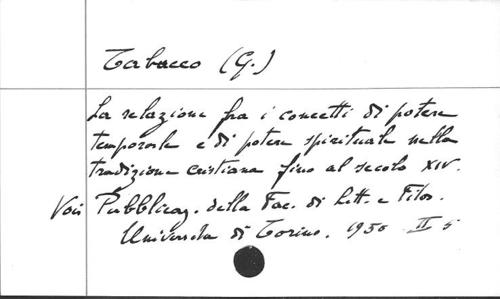 Tabacco (G.)
La relazione fra i concetti di potere
temporale e di potere spirituale nella
tradizione cristiana fino al secolo XIV.
Voir Pubblicaz. della Fac. di Lett. e Filos.
Università di Torino. 1950 II 5